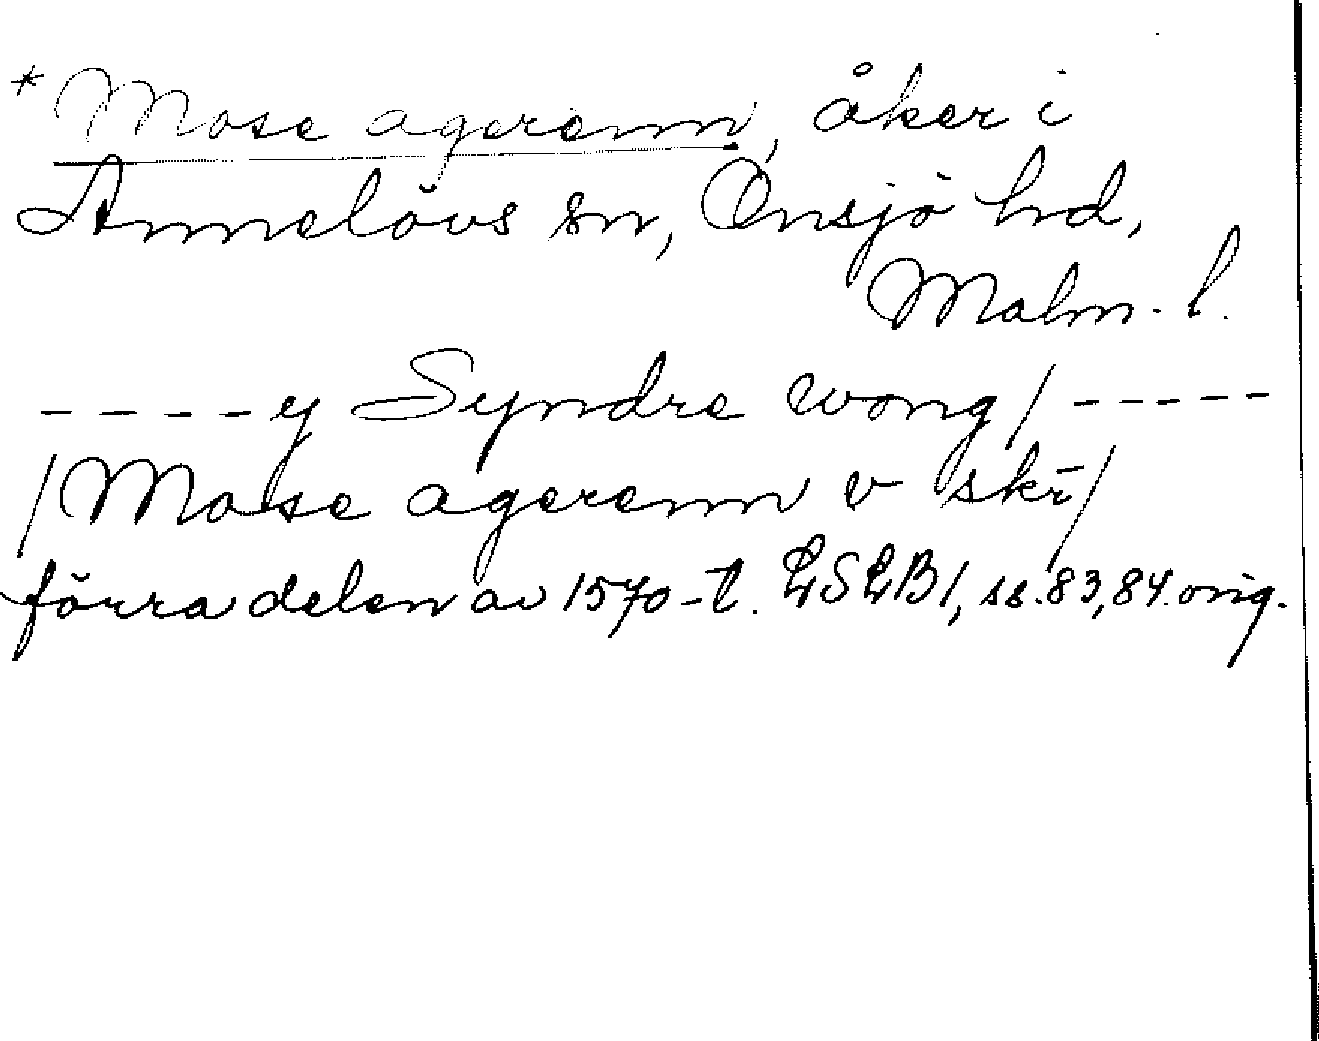 * Mose agerenn, åker i
Annelövs sn, Önsjö hd,
Malm. l.
- - - - - y Syndre wong / - - - - -
/ Mose agerenn v skr /
förra delen av 1570-t. LSLB 1, ss. 83, 84. orig.